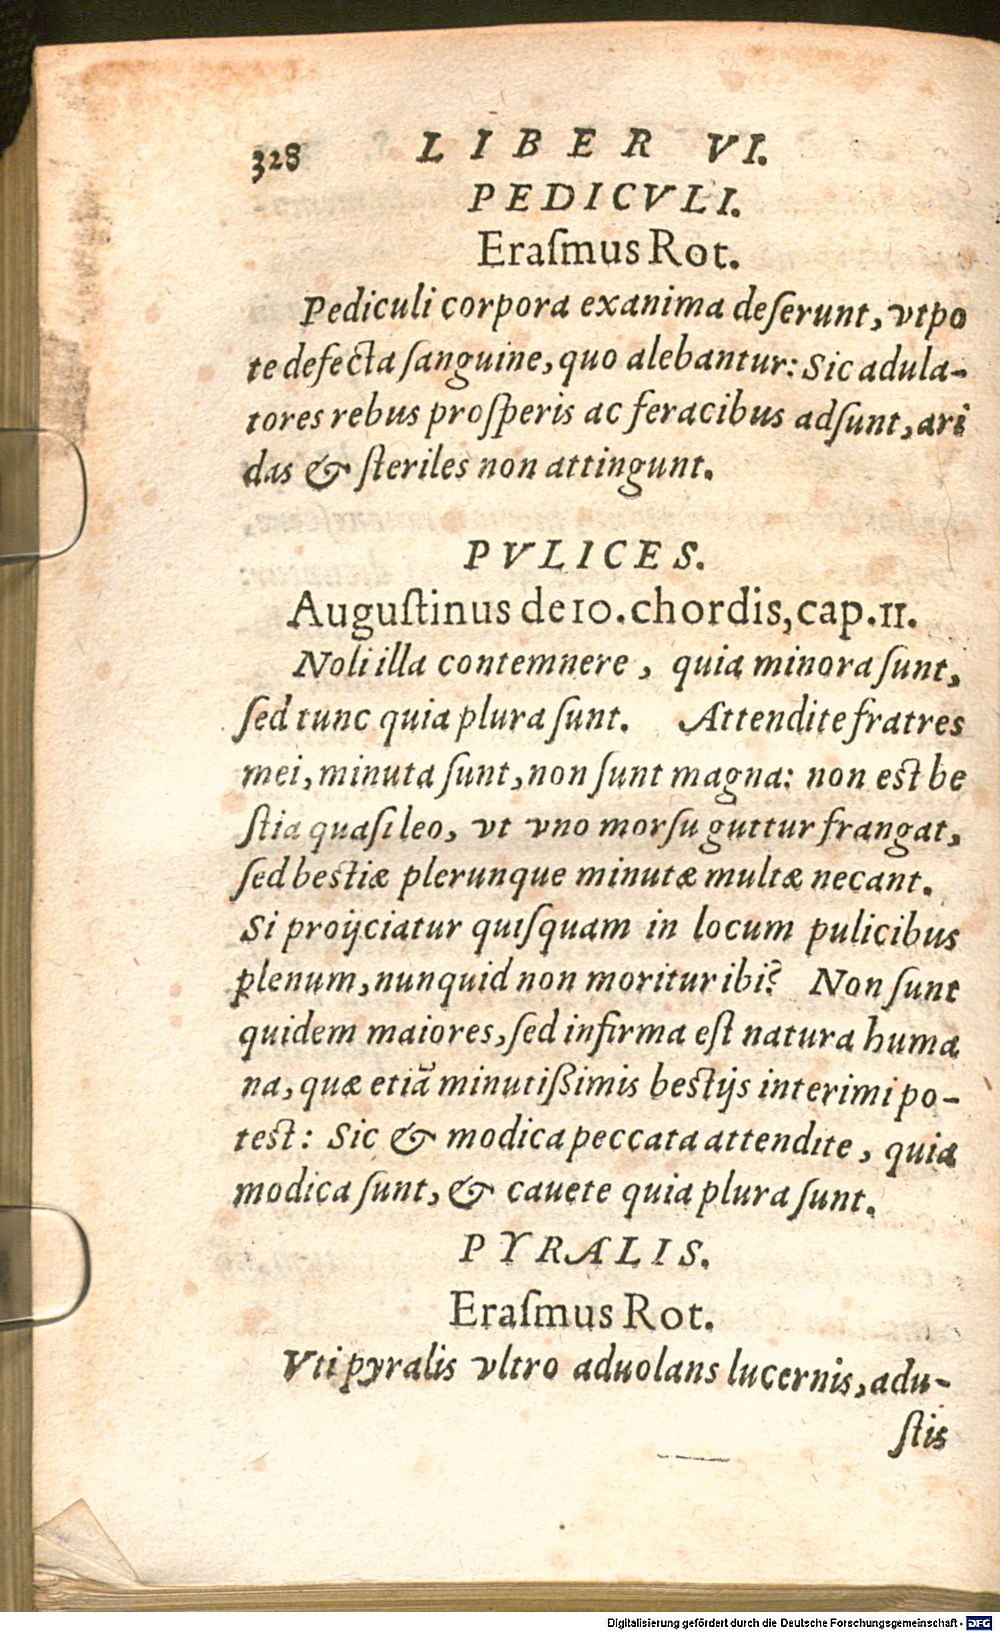 328 LIBER VI.
PEDICVLI.
Eraſmus Rot.
Pediculi corpora exanima deſerunt, vtpo
te defecta ſanguine, quo alebantur: Sic adula-
tores rebus proſperis ac feracibus adſunt, ari
das & ſteriles non attingunt.
PVLICES.
Auguſtinus de 10. chordis, cap. 11.
Noli illa contemnere, quia minora ſunt,
ſed tunc quia plura ſunt. Attendite fratres
mei, minuta ſunt, non ſunt magna: non est be
ſtia quaſi leo, vt vno morſu guttur frangat,
ſed bestiæ plerunque minutæ multæ necant.
Si proijciatur quiſquam in locum pulicibus
plenum, nunquid non moritur ibi? Non ſunt
quidem maiores, ſed infirma eſt natura huma
na, quæ etiã minutißimis bestijs interimi po-
test: Sic & modica peccata attendite, quia
modica ſunt, & cauete quia plura ſunt.
PYRALIS.
Eraſmus Rot.
Vti pyralis vltro aduolans lucernis, adu-
ſtis
Digitalisierung gefördert durch die Deutsche Forschungsgemeinschaft - DFG